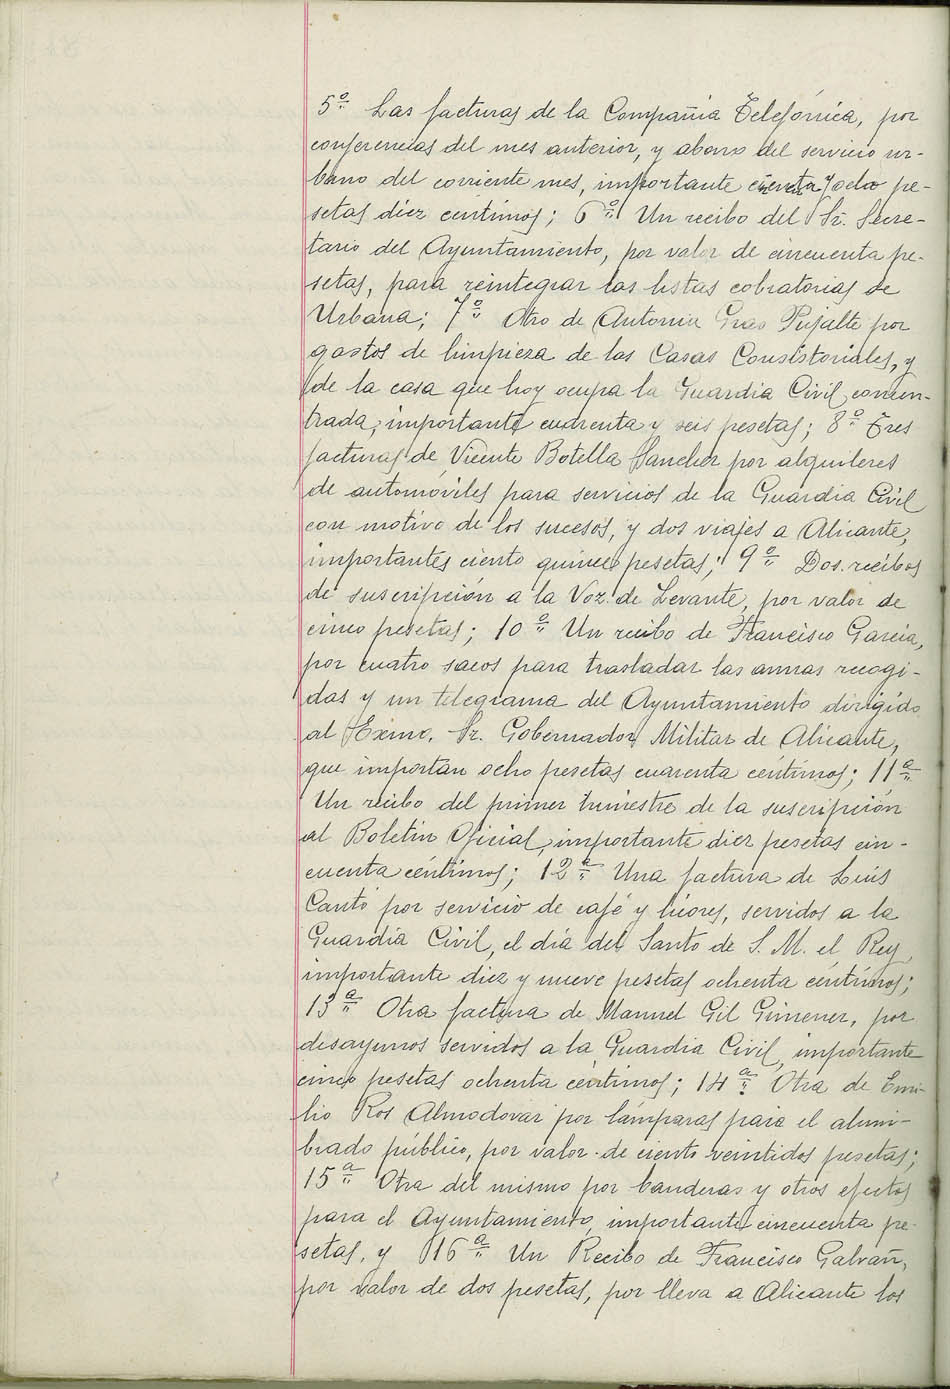 5º Las facturas de la Compañia Telefónica, por
conferencias del mes anterior, y abono del servicio ur-
bano del corriente mes, importante y ocho pe-
setas diez centimos; 6º Un recibo del Sr. Secre-
tario del Ayuntamiento, por valor de cincuenta pe-
setas, para reintegrar las listas cobratorias de
Urbana; 7º Otro de Antonia Gras Pujalte por
gastos de limpieza de las Casas Consistoriales, y
de la casa que hoy ocupa la Guardia Civil concen-
trada, importante cuarenta y seis pesetas; 8º Tres
facturas de Vicente Botella Sanchez por alquileres
de automóviles para servicios de la Guardia Civil
con motivo de los sucesos, y dos viajes a Alicante,
importantes ciento quince pesetas; 9º Dos recibos
de suscripción a la Voz de Levante, por valor de
cinco pesetas; 10º Un recibo de Francisco García,
por cuatro sacos para trasladar las armas recogi-
das y un telegrama del Ayuntamiento dirigido
al Excmo. Sr. Gobernador Militar de Alicante,
que importan ocho pesetas cuarenta céntimos; 11ª
Un recibo del primer trimestre de la suscripción
al Boletin Oficial, importante diez pesetas cin-
cuenta céntimos; 12ª Una factura de Luis
Cantó por servicio de café y licores, servidos a la
Guardia Civil, el día del Santo de S. M. el Rey,
importante diez y nueve pesetas ochenta céntimos;
13ª Otra factura de Manuel Gil Gimenez, por
desayunos servidos a la Guardia Civil, importante
cinco pesetas ochenta céntimos; 14ª Otra de Emi-
lio Ros Almodovar por lámparas para el alum-
brado público, por valor de ciento veintidos pesetas;
15ª Otra del mismo por banderas y otros efectos
para el Ayuntamiento, importante cincuenta pe-
setas, y 16ª Un Recibo de Francisco Galvañ,
por valor de dos pesetas, por lleva a Alicante los